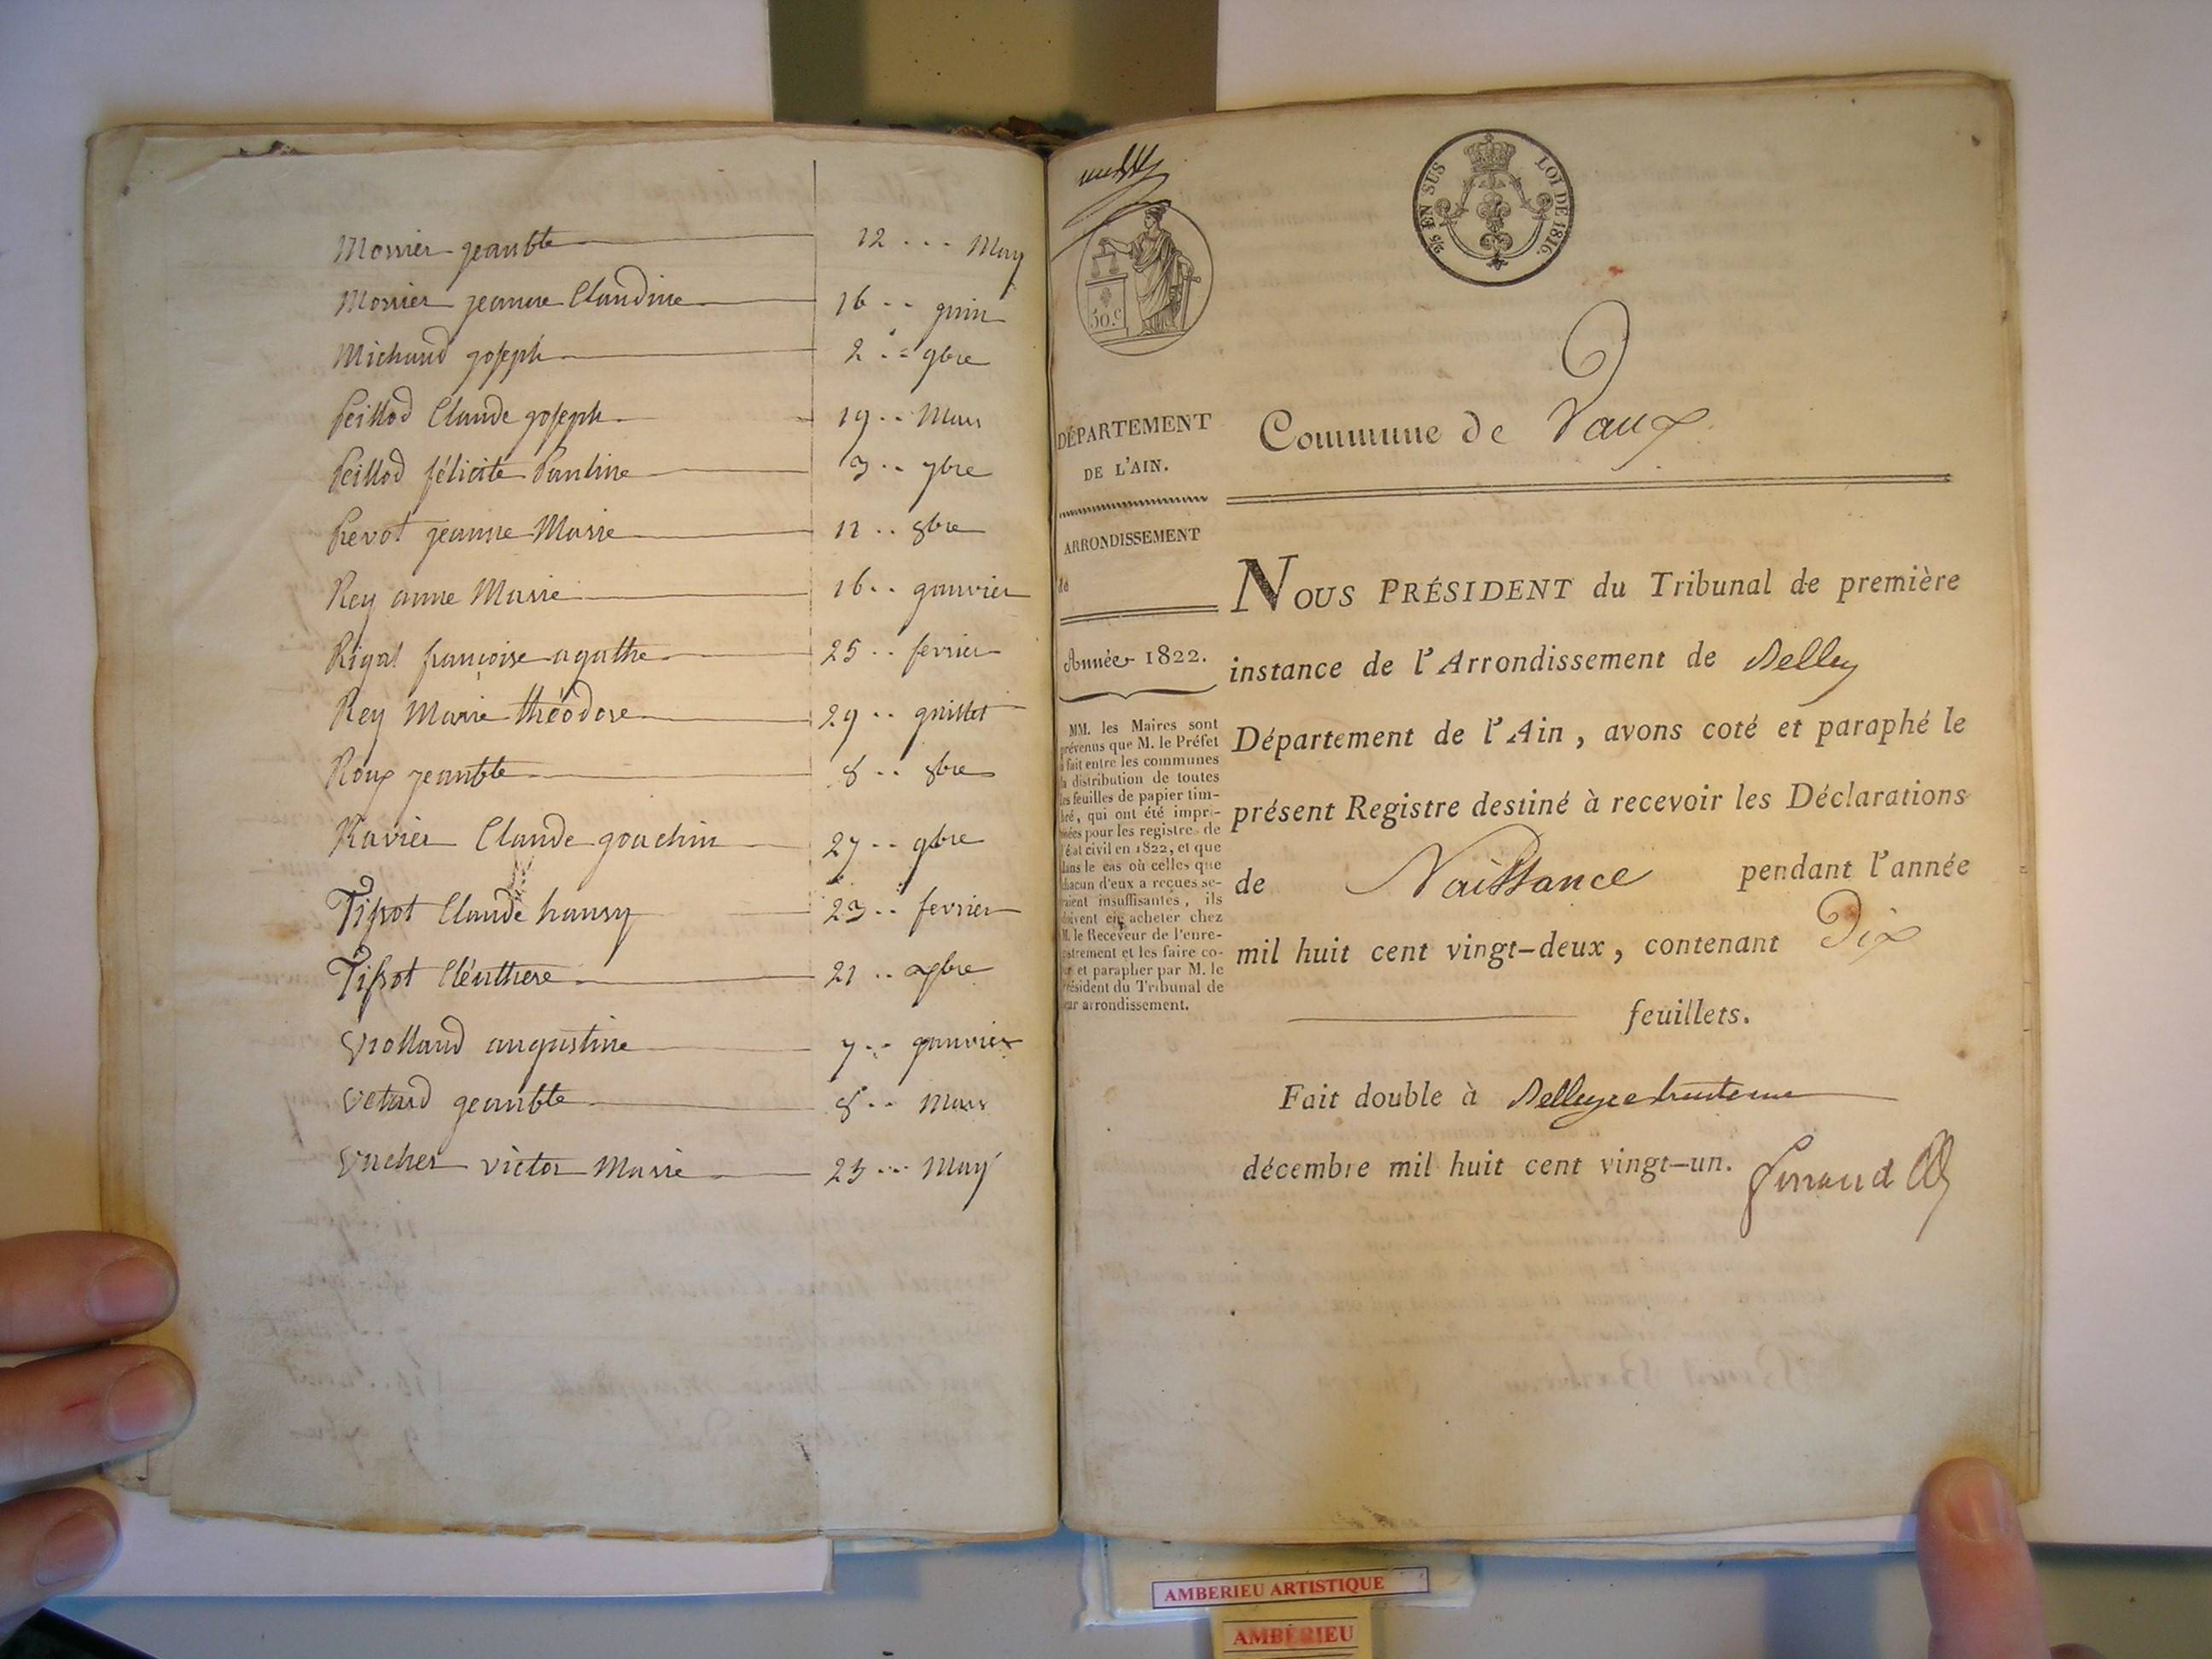 Monier jeanbte 12 ... May
Monier jeanne Claudine 16 .. juin
Michaud joseph 2 .. 9bre
Peillod Claude joseph 19 .. Mars
Peillod félicité Pauline 3 .. 7bre
Prevot jeanne Marie 11 .. 8bre
Rey anne Marie 16 .. janvier
Rigal françoise agathe 25 .. fevrier
Rey Marie théodore 29 .. juillet
Roux jeanbte 8 .. 8bre
Ravier Claude joachin 27 .. 9bre
Tissot Claude 23 .. fevrier
Tissot Eléuthere 21
Vrolland augustine 7 .. janvier
Vetard jeanbte 8 .. Mars
Vucher victor Marie 23 ... May
5/2 EN SUS LOI DE 1816.
50.c
DÉPARTEMENT
DE L'AIN.
ARRONDISSEMENT
de
Année 1822.
MM. les Maires sont
prévenus que M. le Préfet
a fait entre les communes
la distribution de toutes
les feuilles de papier tim-
bré, qui ont été impri-
mées pour les registres de
l'état civil en 1822, et que
dans le cas où celles que
chacun d'eux a reçues se-
raient insuffisantes, ils
doivent en acheter chez
M. le Receveur de l'enre-
gistrement et les faire co-
ter et parapher par M. le
Président du Tribunal de
leur arrondissement.
Commune de Vaux
NOUS PRÉSIDENT du Tribunal de première
instance de l'Arrondissement de Belley
Département de l'Ain, avons coté et paraphé le
présent Registre destiné à recevoir les Déclarations
de Naissance pendant l'année
mil huit cent vingt-deux, contenant Dix
feuillets.
Fait double à Belley ce trente un
décembre mil huit cent vingt-un.
AMBERIEU ARTISTIQUE
AMBÉRIEU